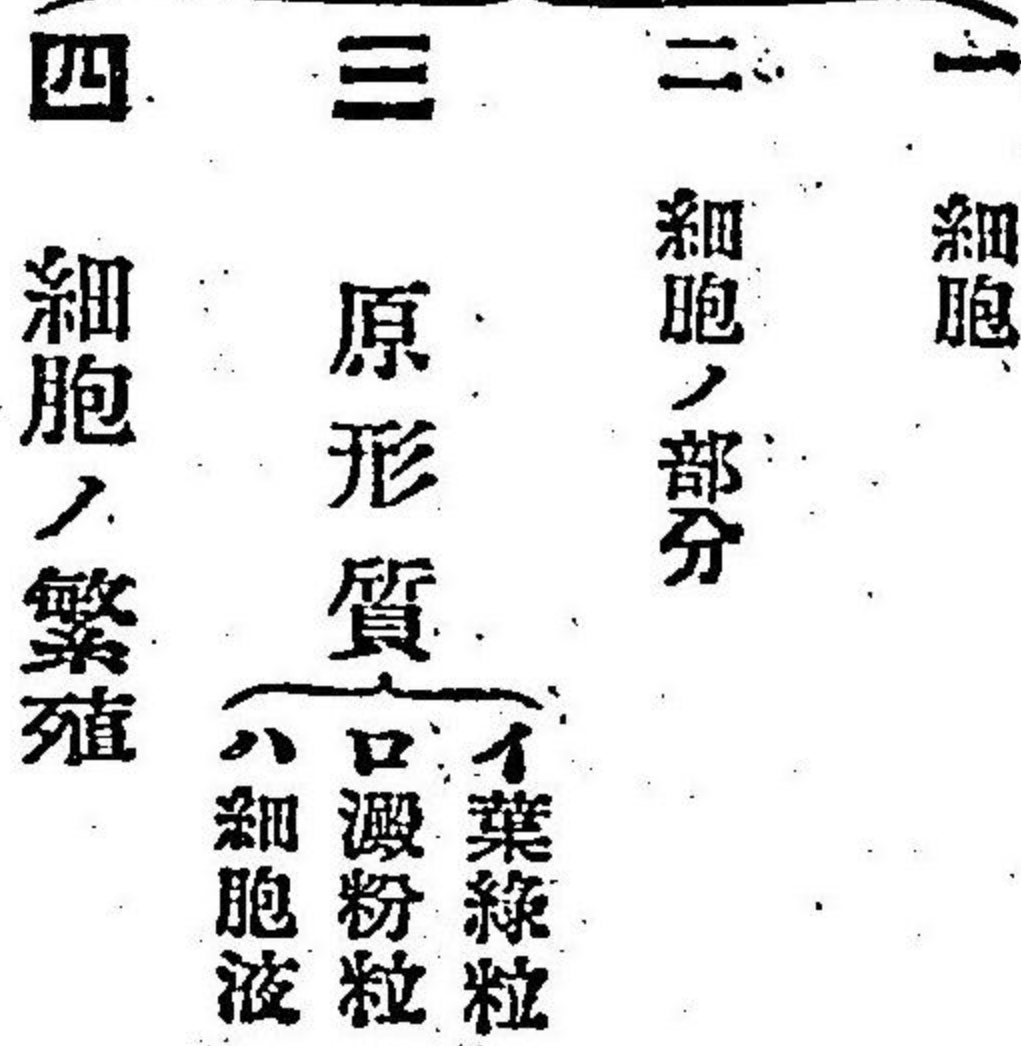 一 細胞
二 細胞ノ部分
三 原形質
イ葉綠粒
ロ澱粉粒
ハ細胞液
四 細胞ノ繁殖